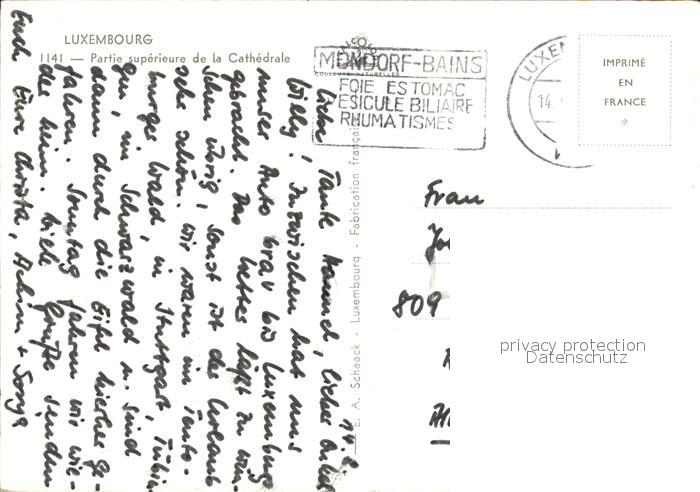 LUXEMBOURG
1141 — Partie supérieure de la Cathédrale
MONDORF-BAINS
FOIE ESTOMAC
VESICULE BILIAIRE
RHUMATISMES
LUXEM
14.
IMPRIMÉ
EN
FRANCE
*
COULEURS NATURELLES
E. A. Schaack - Luxembourg - Fabrication française
14.8.
Liebe Tante Hannel, lieber Onkel
Willy! Inzwischen hat uns
unser Auto brav bis Luxemburg
gebracht. Das Wetter läßt zu wün-
schen übrig, sonst ist der Urlaub
sehr schön. Wir waren im Teuto-
burger Wald, in Stuttgart, Tübin-
gen, im Schwarzwald u. sind
dann durch die Eifel hierher ge-
fahren. Sonntag fahren wir wie-
der heim. Viele Grüße senden
Euch Eure Christa, Achim + Sonja
Frau
809
privacy protection
Datenschutz